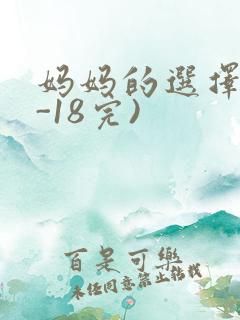 妈妈的選擇
-18完)
百是可樂
未经同意禁止转载